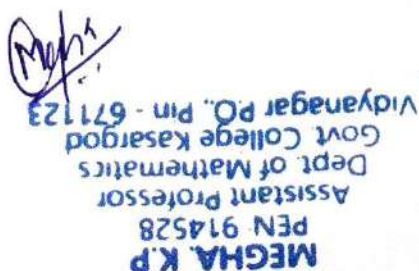 MEGHA. K.P
PEN 914528
Assistant Professor
Dept. of Mathematics
Govt College Kasargod
Vidyanagar P.O., Pin - 671123
Megha